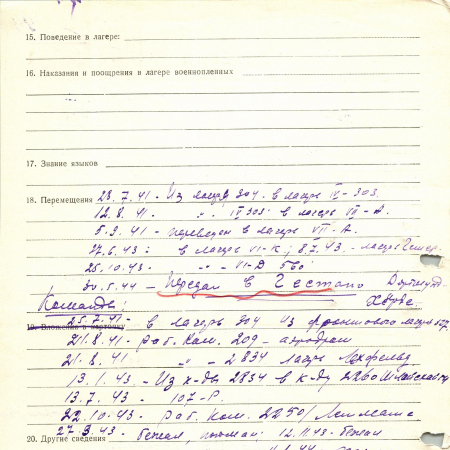 15. Поведение в лагере:
16. Наказания и поощрения в лагере военнопленных
17. Знание языков
18. Перемещения 23.7.41 - Из лагеря 304 в лагерь IV-303.
12.8.41 - " " IV 303: в лагерь VII-A.
5.9.41 - переведен в лагерь VII-A.
27.6.43: в лагерь VI-K; 8.7.43. - лагерь
25.10.43 - " " VI-D
44 - Передан в Гестапо Дортмунд
Команды:
25.7.41 - в лагерь 304 из фронтового лагеря
19. Вложения в карточку
21.8.41 - раб. Ком. 209 - аэродром
21.8.41 " " 2834 лагерь Лехфельд
13.1.43. - Из к-ды 2834 в к-ду
13.7.43 - 107-Р.
22.10.43 - раб. Ком. 2250/ Летмате
27.3.43 - бежал, пойман: 12.11.43 - бежал
20. Другие сведения